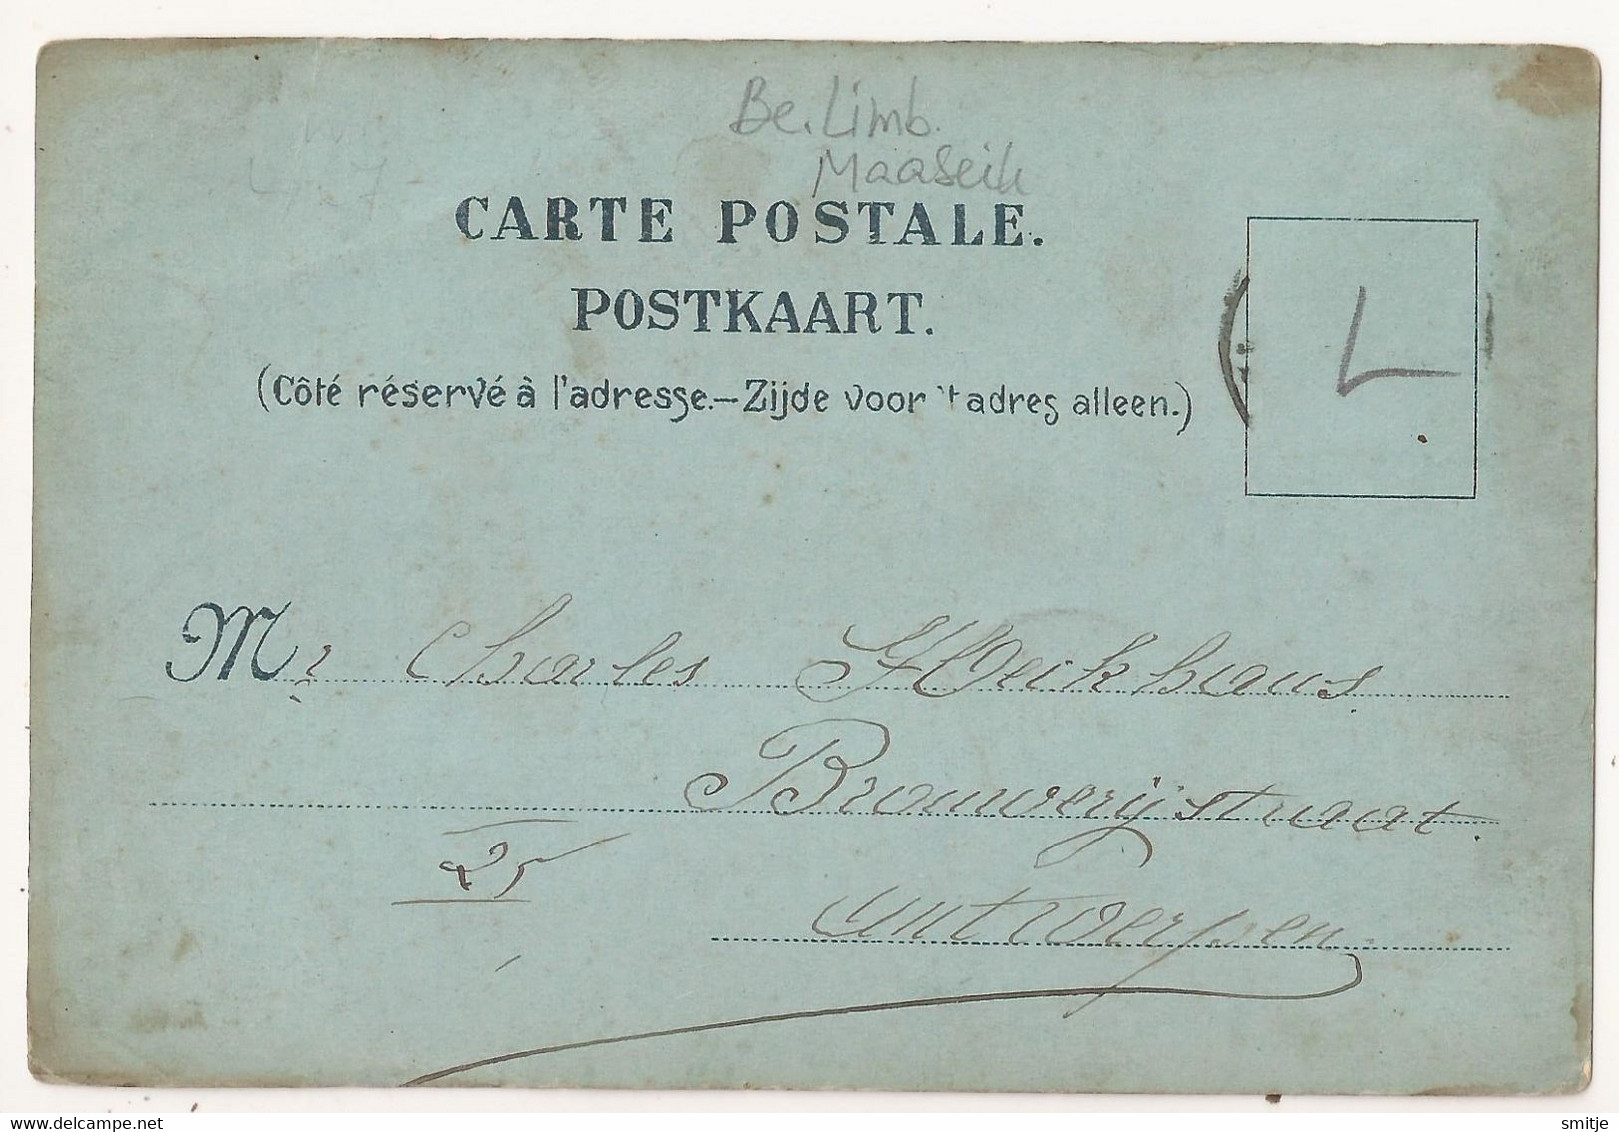 Be. Limb.
Maaseik
CARTE POSTALE.
POSTKAART.
(Côté réservé à l'adresse.-Zijde voor 't adres alleen.)
Mr Charles
Brouwerijstraat.
25
Antwerpen.
delcampe.net
smitje